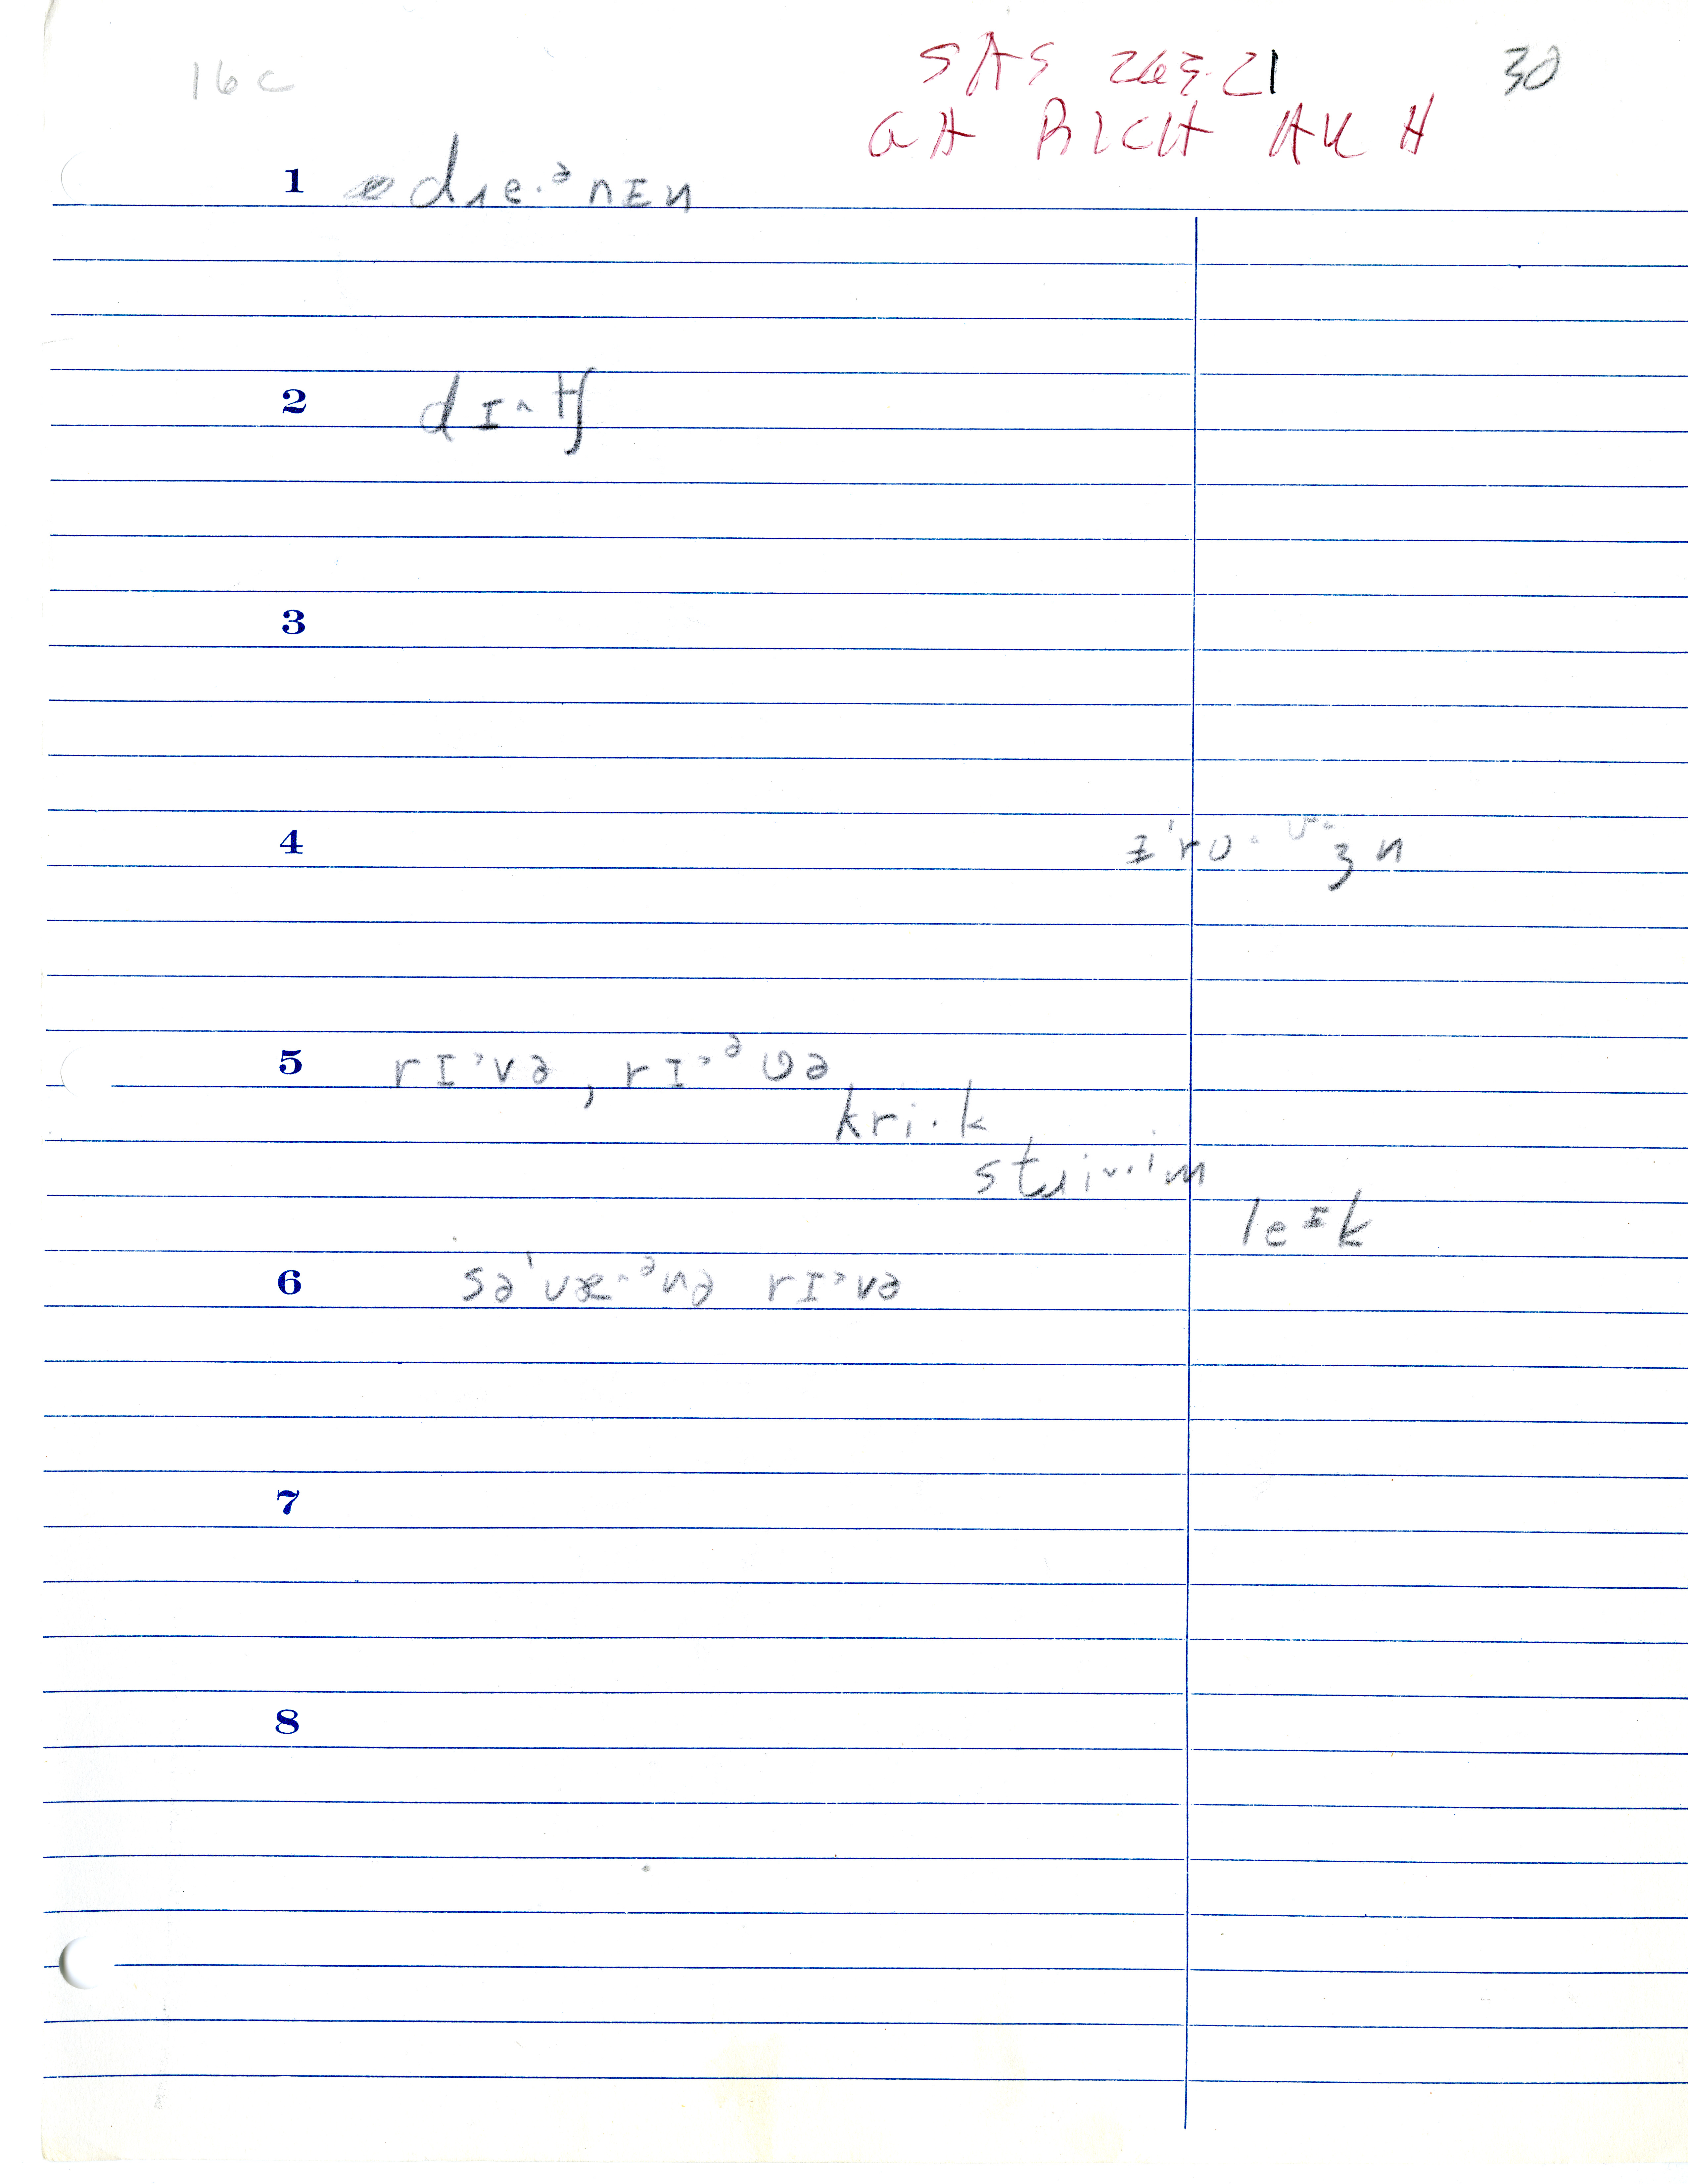 16c SAS 263.21 30
GA RICH AK H
1 dɹe·ᵊnɪn
2 dɪ˄tʃ
3
4 ɪ'ro·ᶷ˞ʒn
5 rɪ˃və, rɪ˃ᵊʋə
kri·k
stɹiᵛ·ⁱm
leᶦk
6 sə'væ˄ᵊnə rɪ˃və
7
8